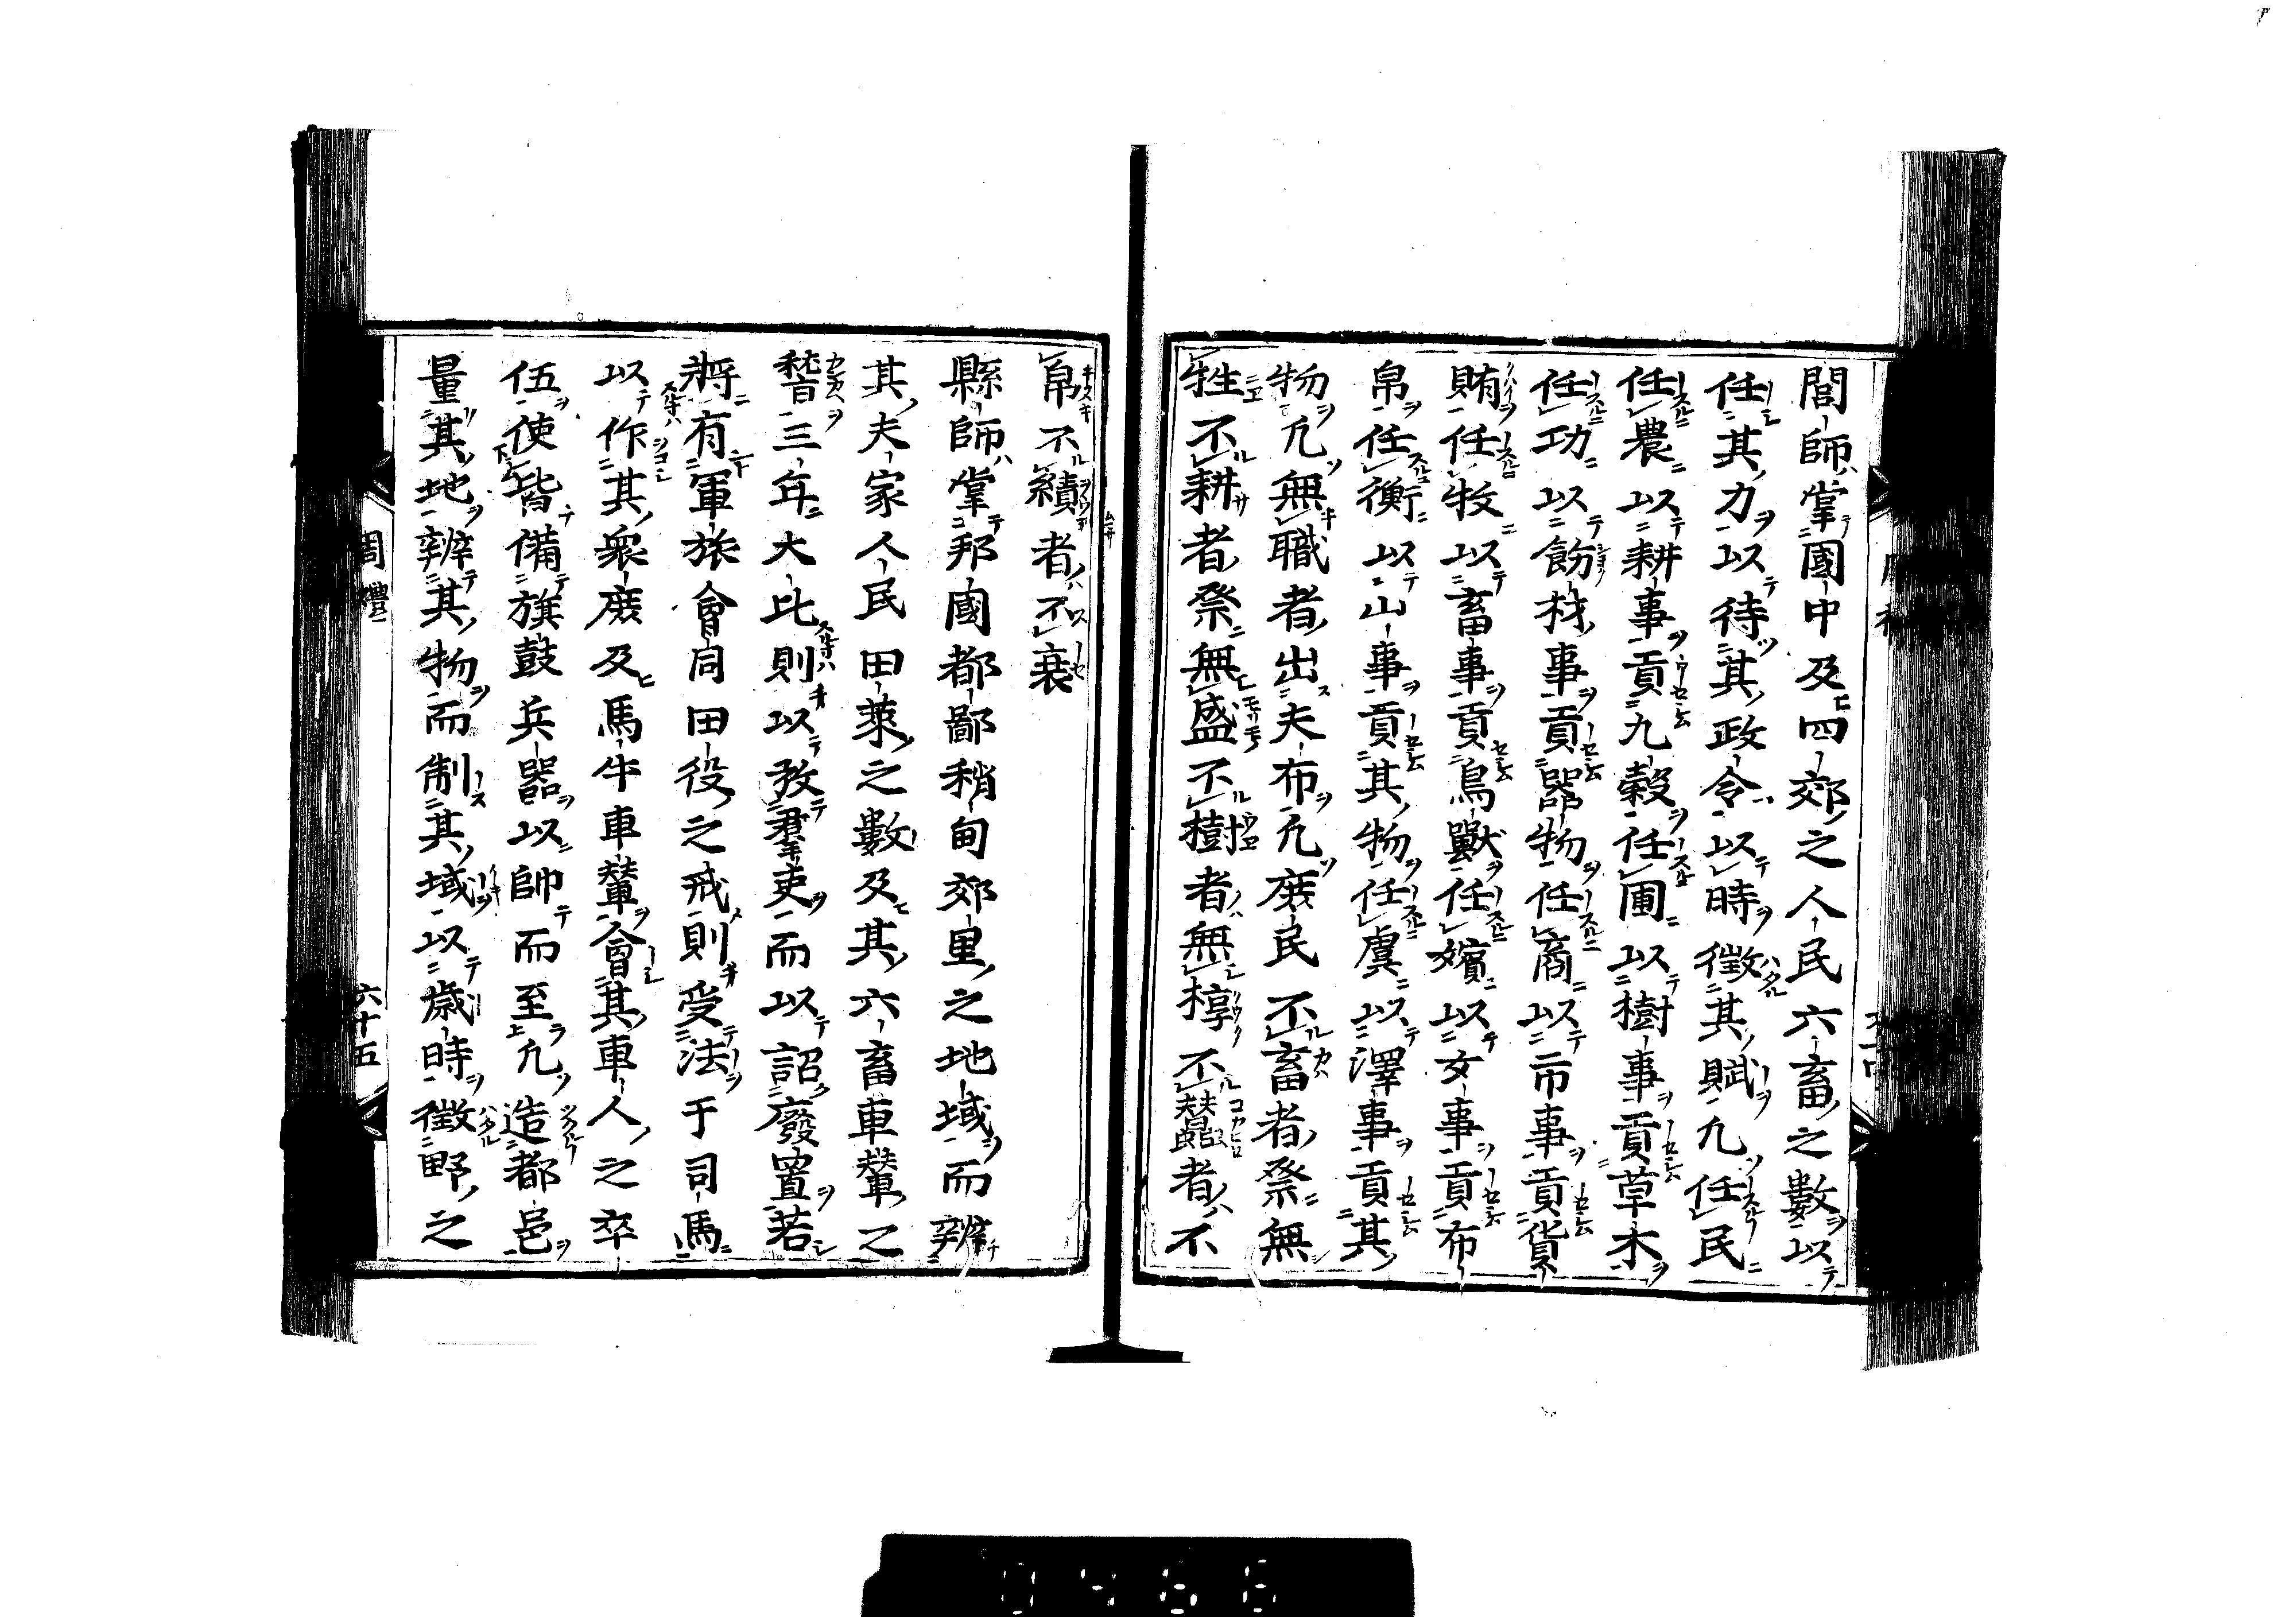 閭師掌國中及四郊之人民六畜之數以
任其力以待其政令以時徵其賦凡任民
任農以耕事貢九穀任圃以樹事貢草木
任功以飭材事貢器物任商以市事貢貨
賄任牧以畜事貢鳥獸任嬪以女事貢布
帛任衡以山事貢其物任虞以澤事貢其
物凡無職者出夫布凡庶民不畜者祭無
牲不耕者祭無盛不樹者無椁不蠶者不
帛不績者不衰
縣師掌邦國都鄙稍甸郊里之地域而辨
其夫家人民田萊之數及其六畜車輦之
稽三年大比則以攷羣吏而以詔廢置若
將有軍旅會同田役之戒則受法于司馬
以作其衆庶及馬牛車輦會其車人之卒
伍使皆備旗鼓兵器以帥而至凡造都邑
量其地辨其物而制其域以歲時徵野之
周禮
六十五